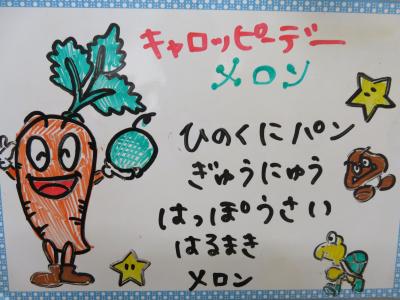 キャロッピーデー
メロン
ひのくにパン
ぎゅうにゅう
はっぽうさい
はるまき
メロン